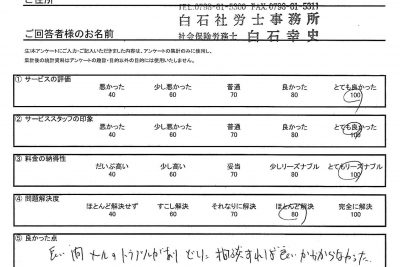 TEL0798-61-5300 FAX.0798-61-5311
白石社労士事務所
ご回答者様のお名前 社会保険労務士 白石幸史
(注)本アンケートにご入力・ご記入いただきました内容は、アンケートの集計のみに使用し、
集計後の統計資料はアンケートの趣旨・目的以外の目的には使用しません。
① サービスの評価
悪かった 少し悪かった 普通 良かった とても良かった
40 60 70 80 100
② サービススタッフの印象
悪かった 少し悪かった 普通 良かった とても良かった
40 60 70 80 100
③ 料金の納得性
だいぶ高い 少し高い 妥当 少しリーズナブル とてもリーズナブル
40 60 70 80 100
④ 問題解決度
ほとんど解決せず すこし解決 それなりに解決 ほとんど解決 完全に解決
40 60 70 80 100
⑤ 良かった点
長い間メールのトラブルがあり どこに相談すれば良いかわからなかった